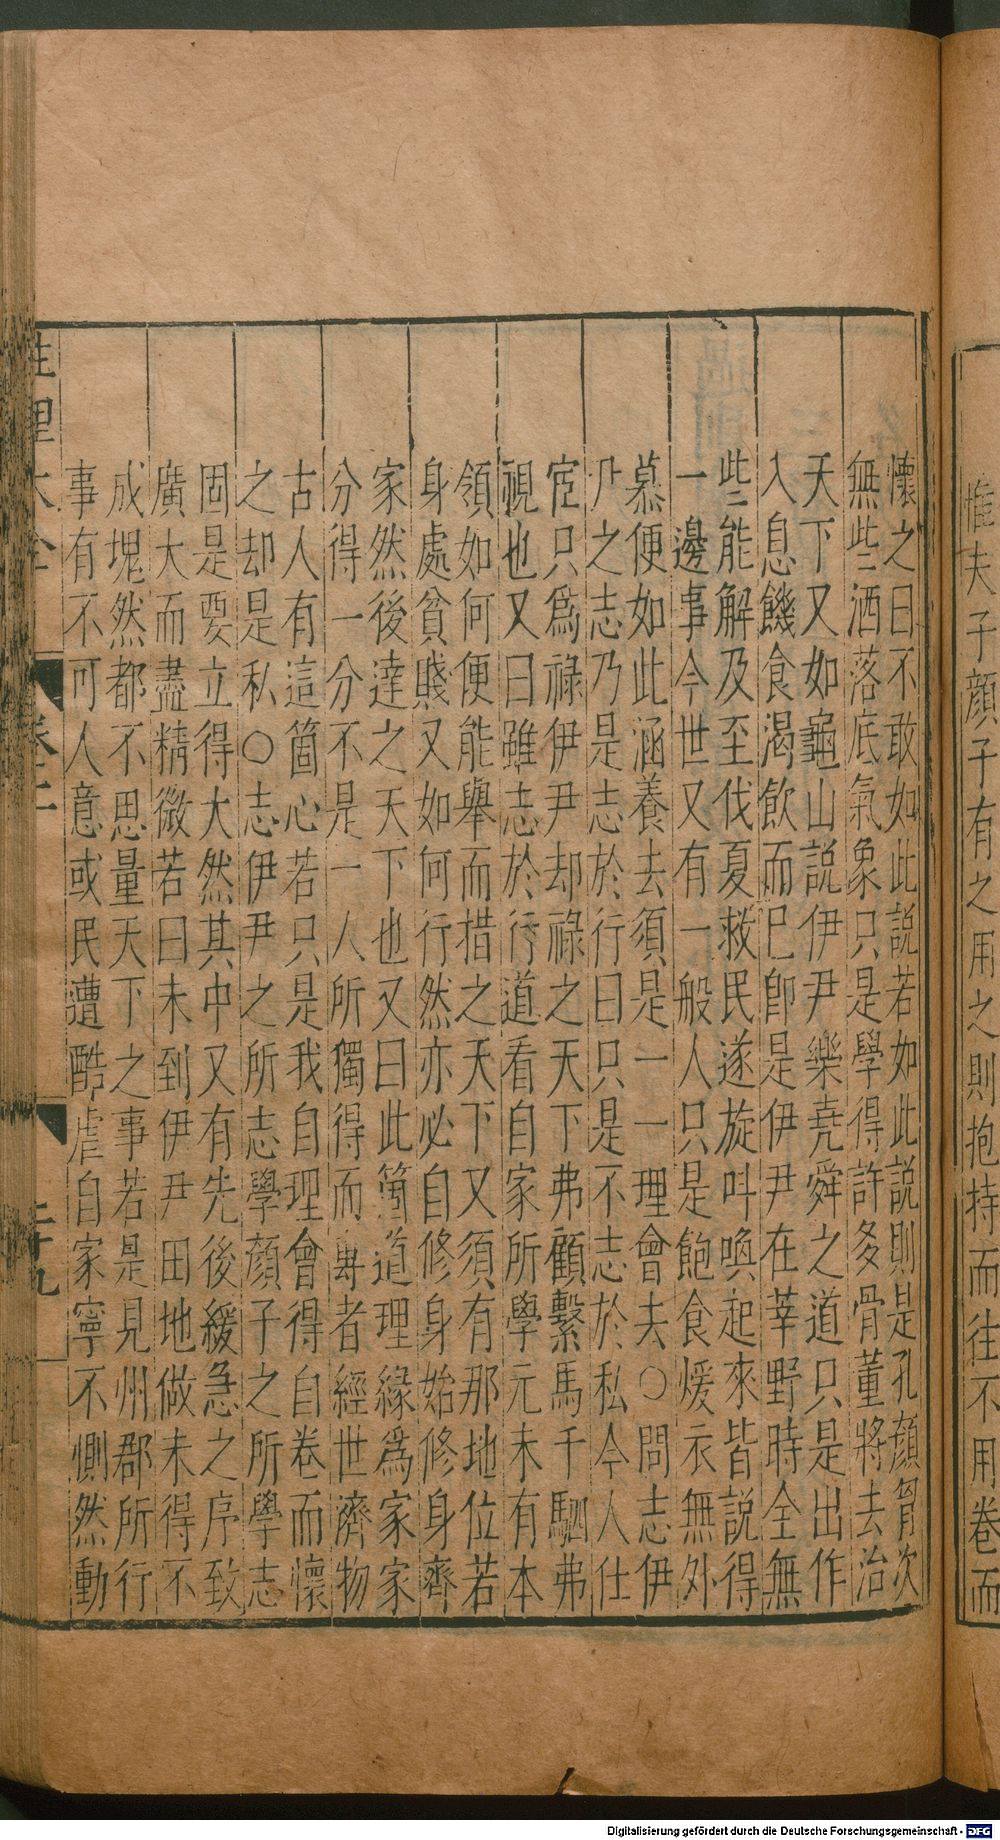 惟夫子顔子有之用之則抱持而往不用卷而
懷之曰不敢如此説若如此説則是孔顔胷次
無些洒落底氣象只是學得許多骨董將去治
天下又如龜山説伊尹樂堯舜之道只是出作
入息饑食渴飲而已即是伊尹在莘野時全無
些能解及至伐夏救民遂旋叫喚起來皆説得
一邊事今世又有一般人只是飽食煖衣無外
慕便如此涵養去須是一一理會夫○問志伊
尹之志乃是志於行曰只是不志於私今人仕
宦只爲祿伊尹却祿之天下弗顧繫馬千駟弗
視也又曰雖志於行道看自家所學元未有本
領如何便能舉而措之天下又須有那地位若
身處貧賤又如何行然亦必自修身始修身齊
家然後達之天下也又曰此箇道理緣爲家家
分得一分不是一人所獨得而專者經世濟物
古人有這箇心若只是我自理會得自卷而懷
之却是私○志伊尹之所志學顔子之所學志
固是要立得大然其中又有先後緩急之序致
廣大而盡精微若曰未到伊尹田地做未得不
成塊然都不思量天下之事若是見州郡所行
事有不可人意或民遭酷虐自家寧不惻然動
性理大全 卷二 二十九
Digitalisierung gefördert durch die Deutsche Forschungsgemeinschaft - DFG